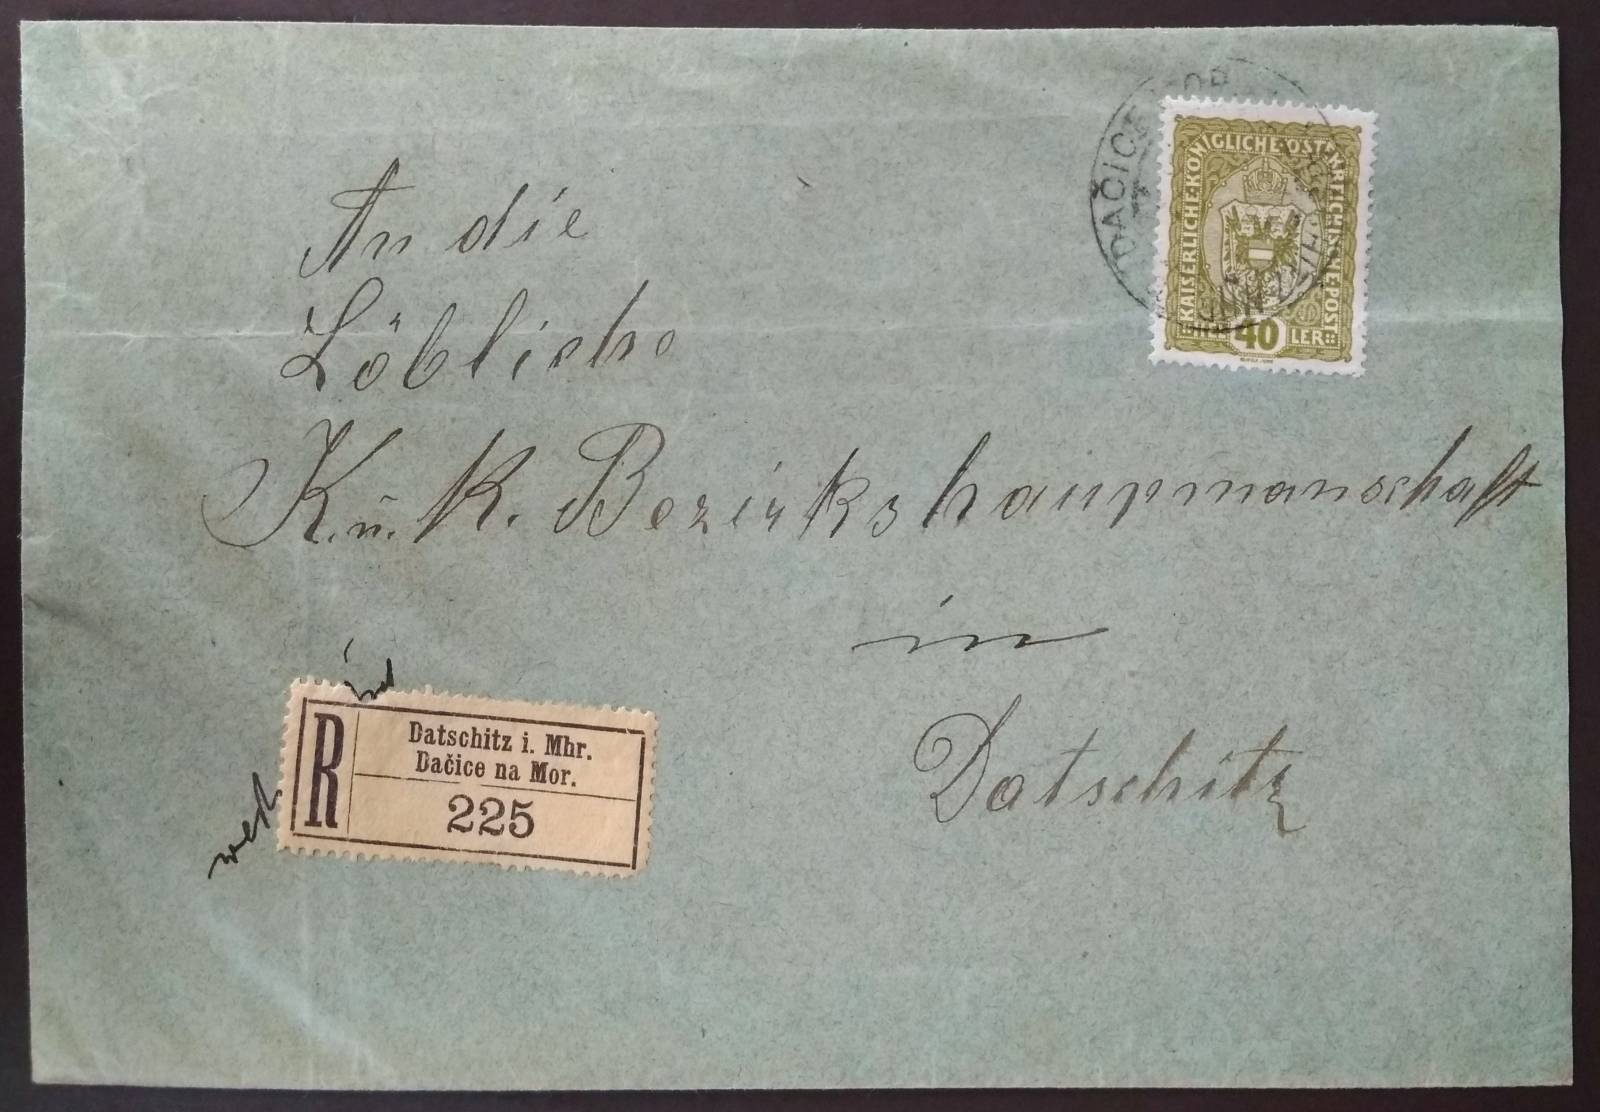 An die
Löbliche
K. u. K. Bezirkshaupmanschaft
in
Datschitz
KAISERLICHE·KÖNIGLICHE·ÖSTERREICHISCHE·POST
HELLER
40
DAČICE
R
Datschitz i. Mhr.
Dačice na Mor.
225